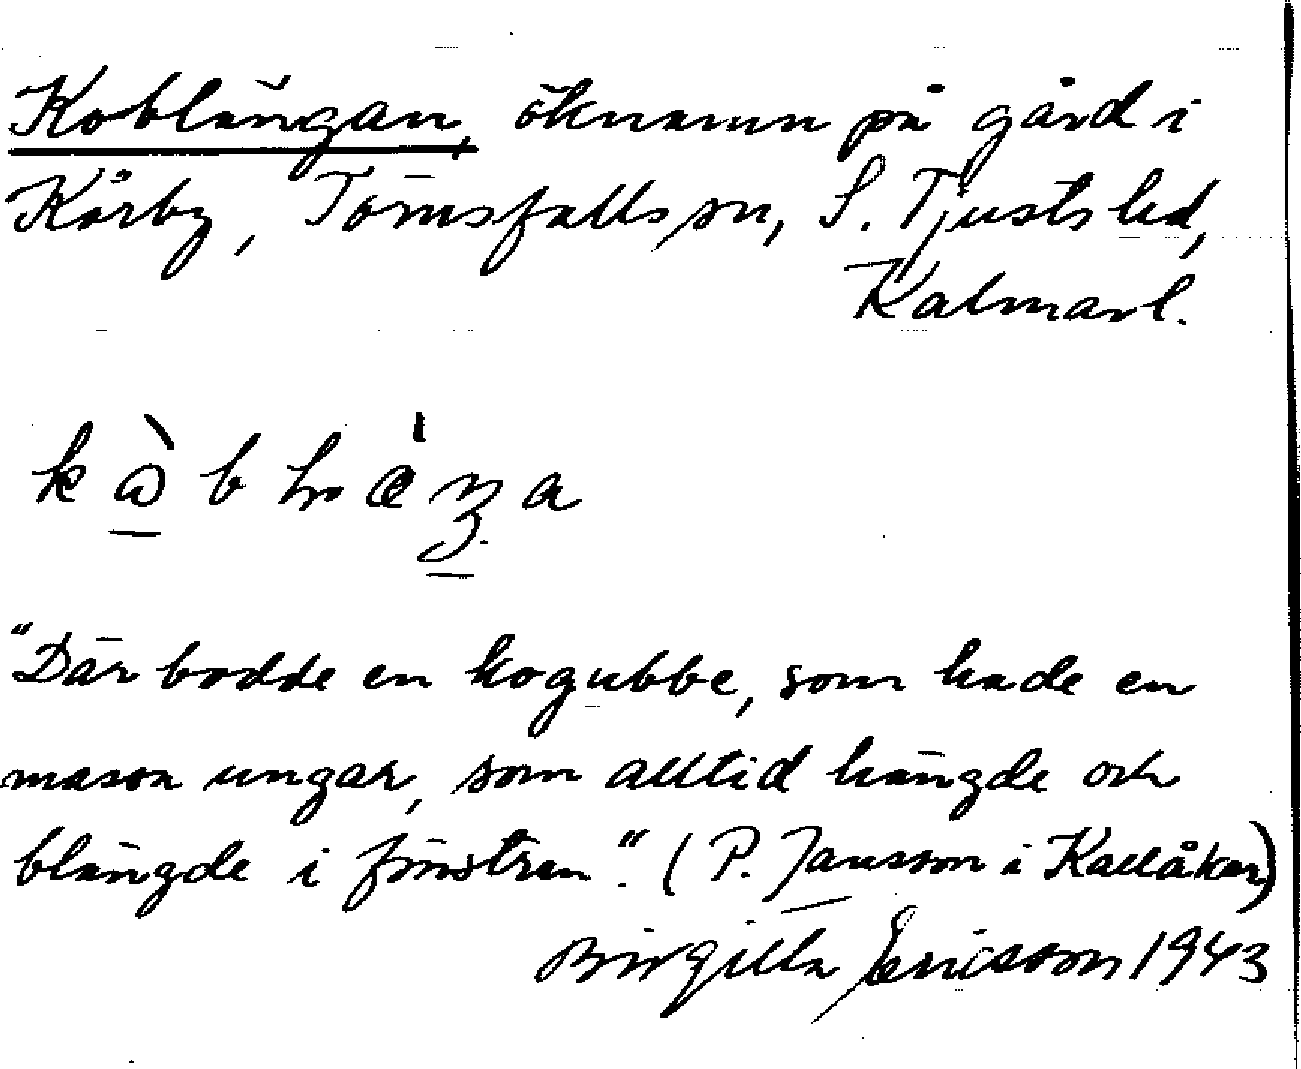 Koblängan, öknamn på gård i
Kårby, Törnsfalls sn, S. Tjusts hd,
Kalmar l.
"Där bodde en kogubbe, som hade en
massa ungar, som alltid hängde och
blängde i fönstren". (P. Jansson i Kallåker)
Birgitta Ericsson 1943